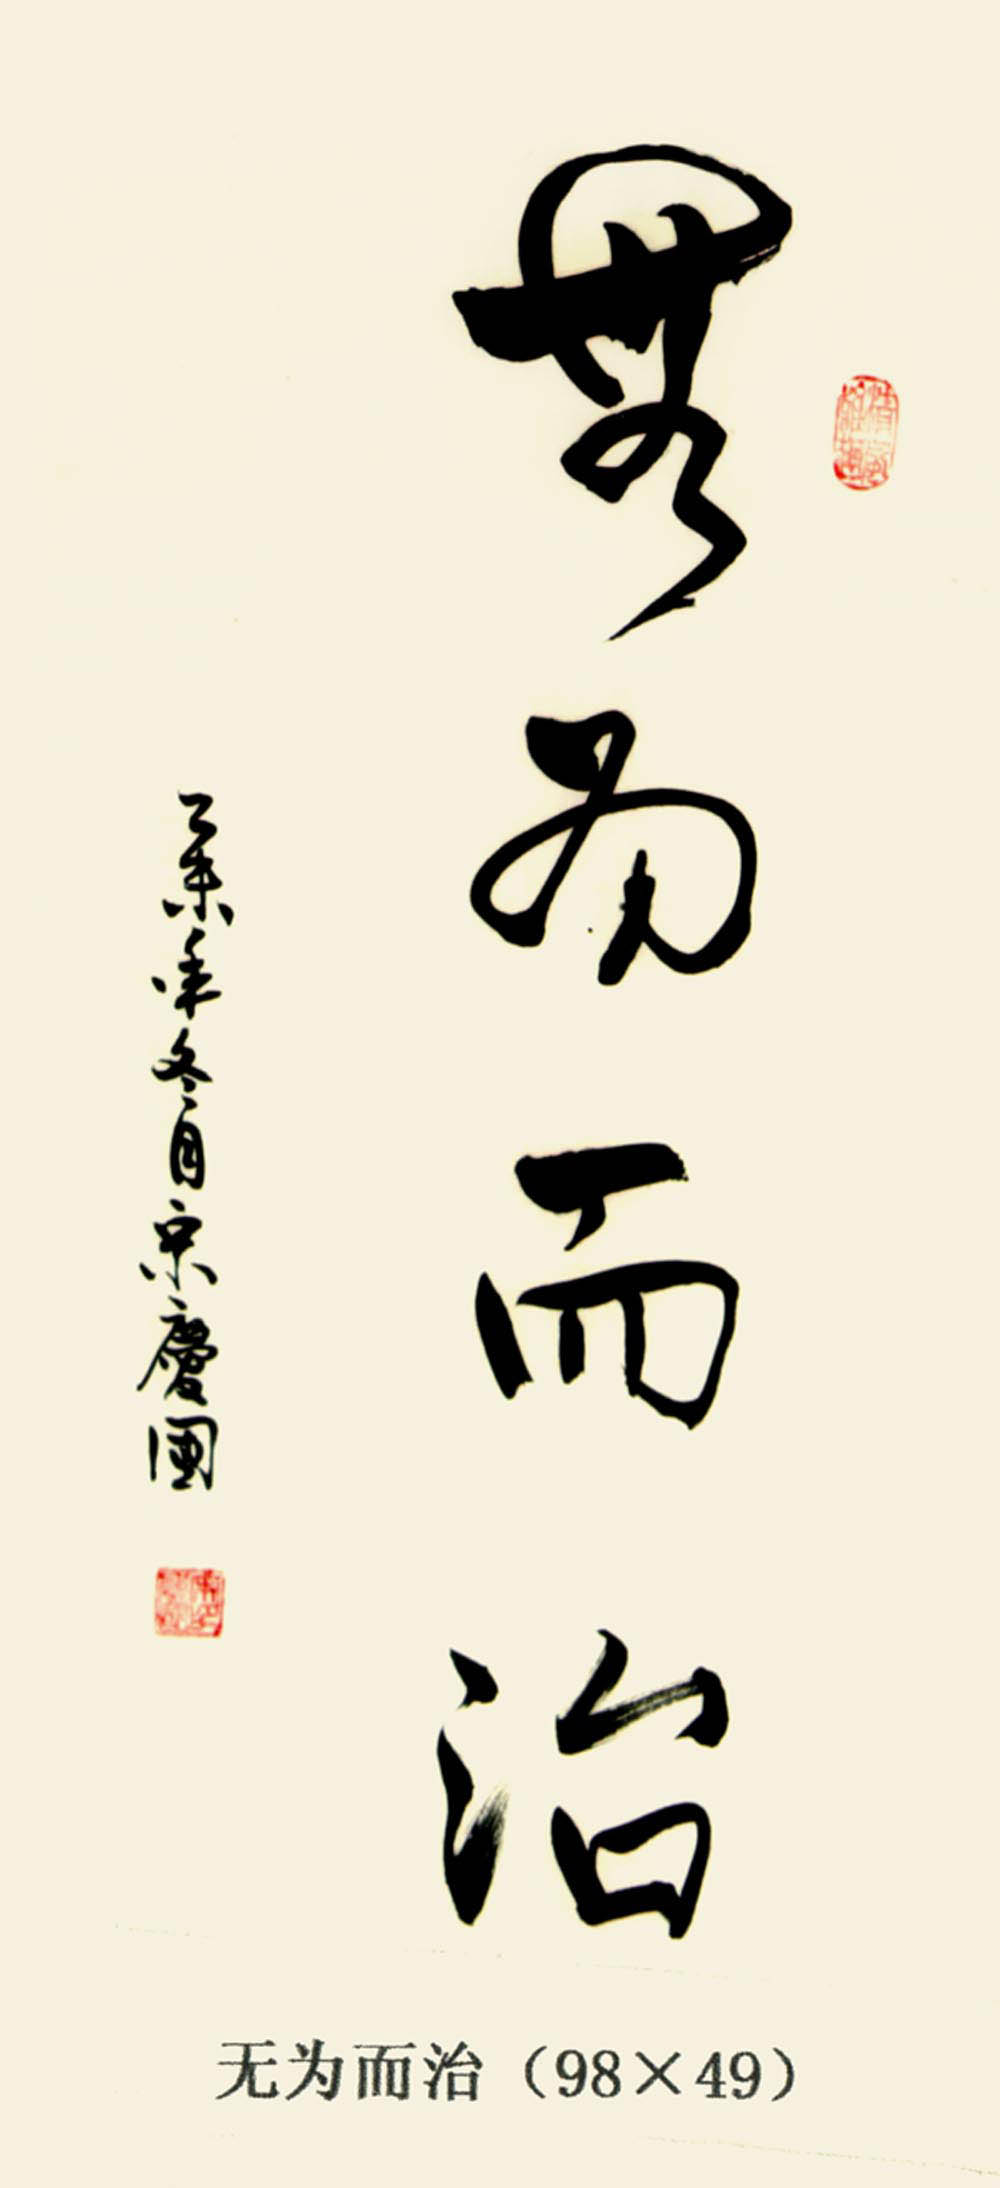 無為而治
乙未年冬月宗慶國
无为而治（98×49）